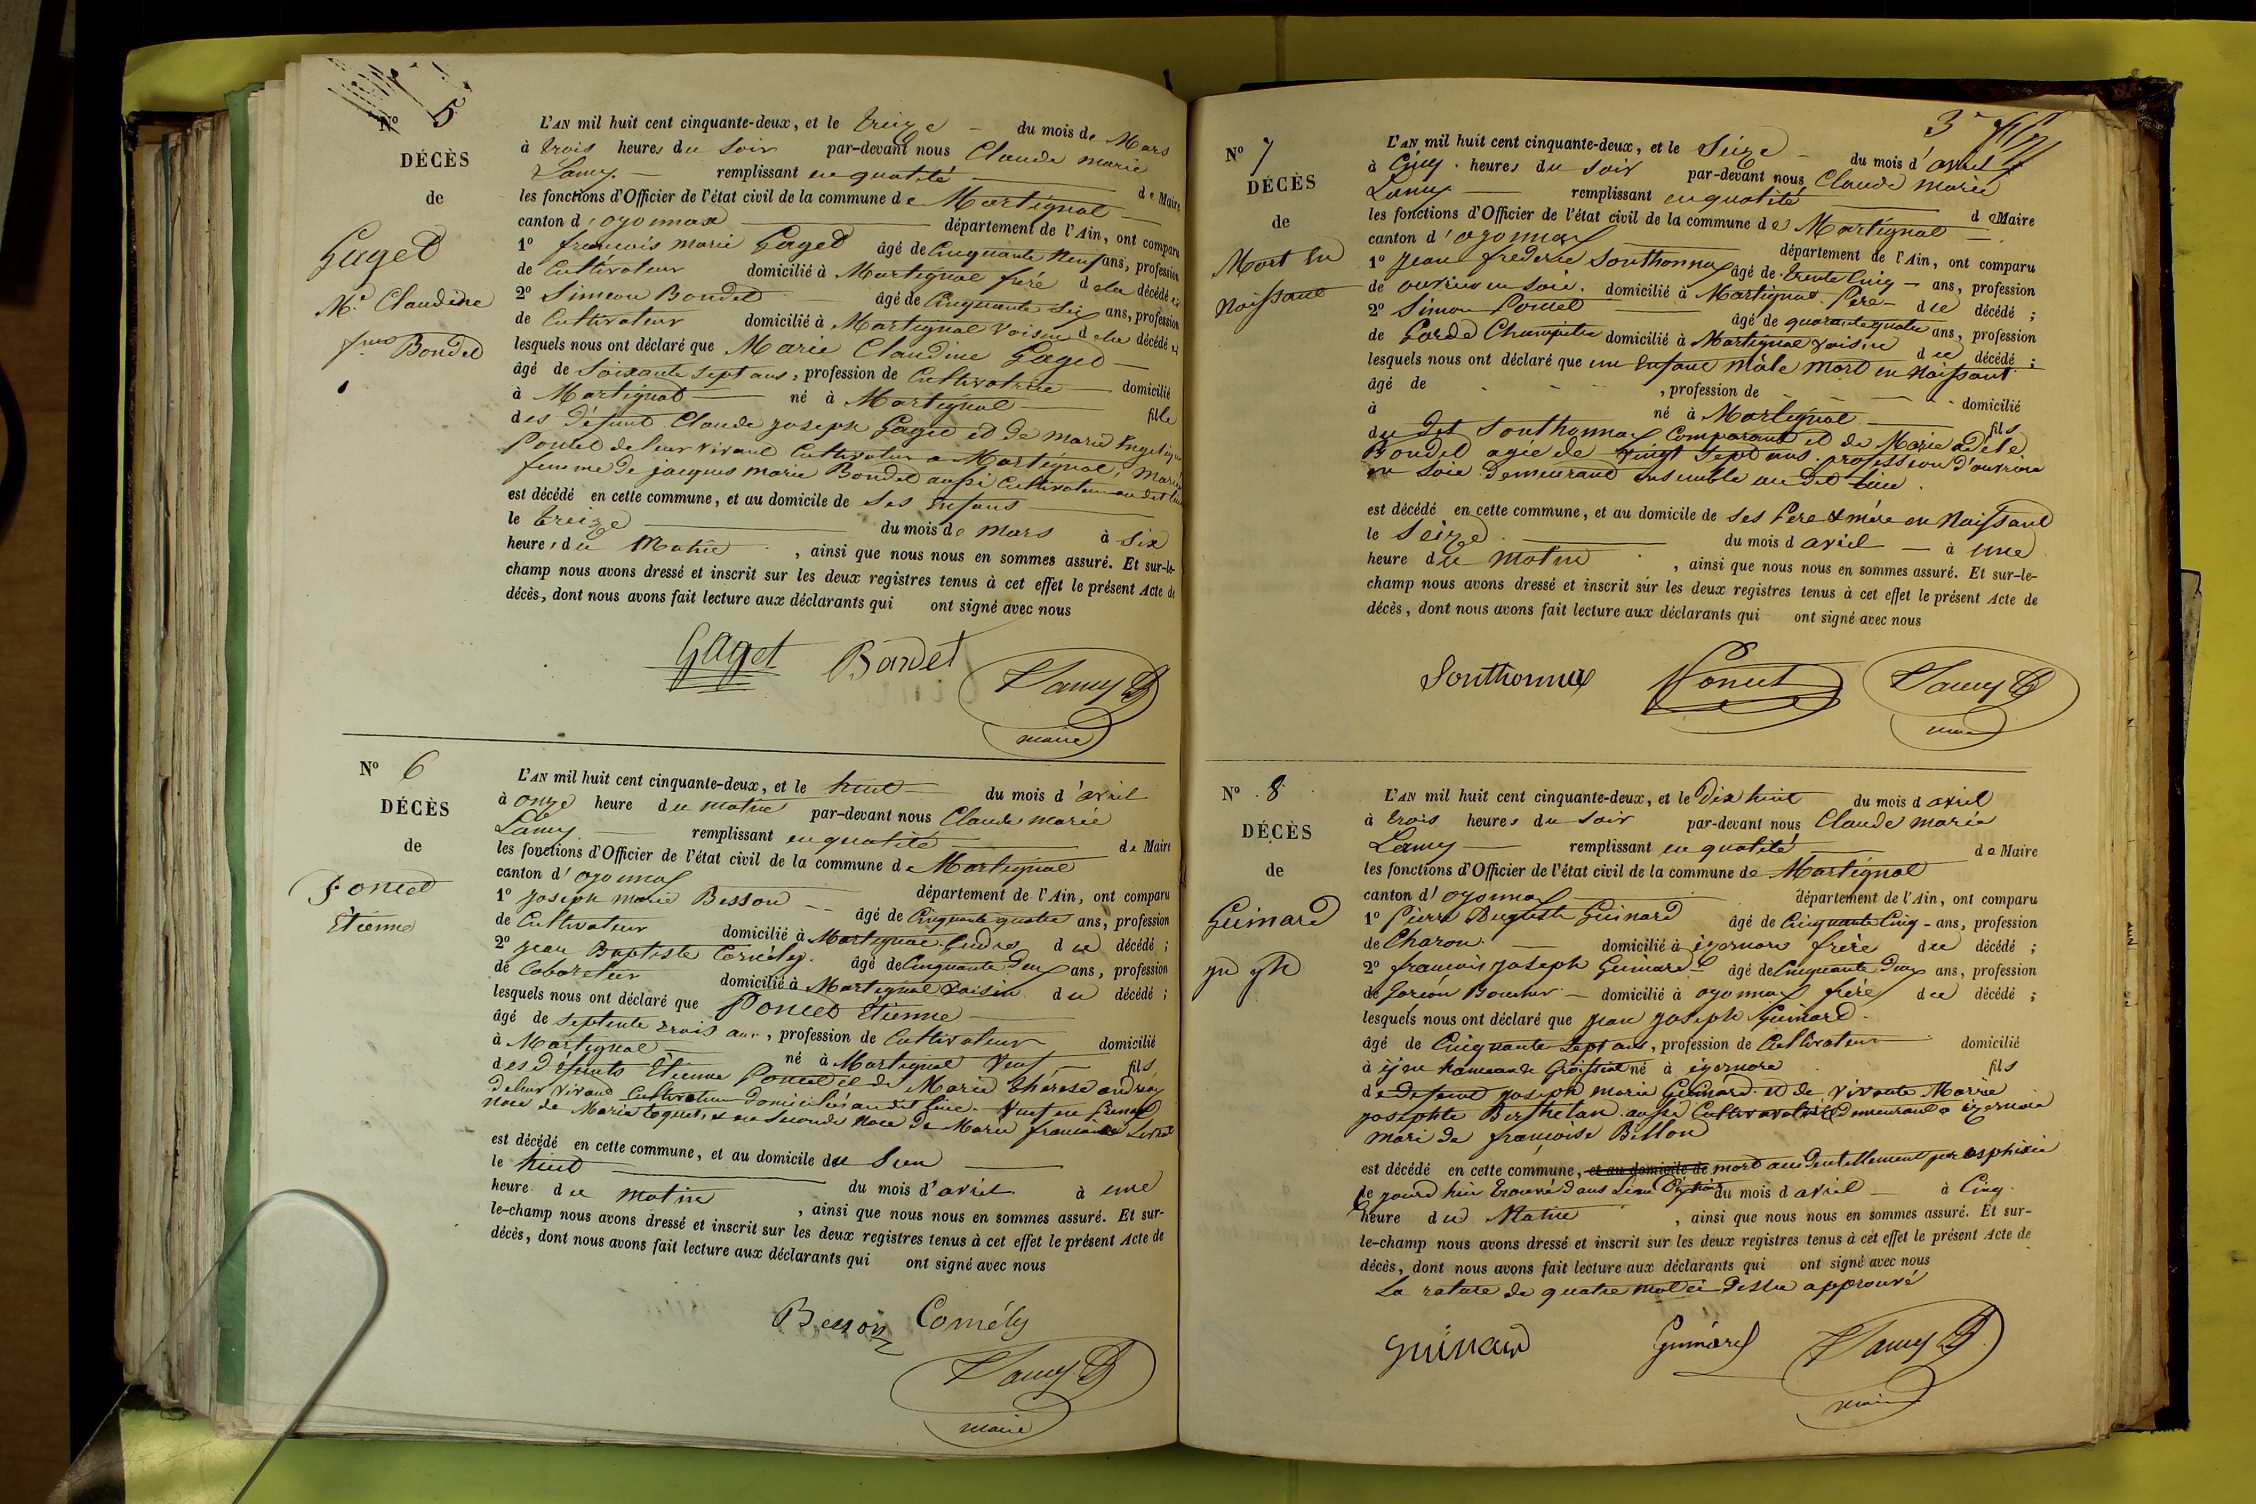 Nº 5
DÉCÈS
de
Gaget
Mie Claudine
fme Bondet
L'AN mil huit cent cinquante-deux, et le treize du mois de Mars
à trois heures du Soir par-devant nous Claude marie
Lamy remplissant en qualité de Maire
les fonctions d'Officier de l'état civil de la commune de Martignat
canton d'oyonnax département de l'Ain, ont comparu
1º francois marie Gaget âgé de Cinquante Neuf ans, profession
de Cultivateur domicilié à Martignat frére de la décédé et
2º Simeon Bondet âgé de Cinquante Six ans, profession
de Cultivateur domicilié à Martignat Voisin de la décédé et
lesquels nous ont déclaré que Marie Claudine Gaget
âgé de Soixante Sept ans, profession de Cultivatrice domicilié
à Martignat né à Martignat fille
des Défunt Claude joseph Gaget et de Marie Angelique
Poncet de leur vivant Cultivateur a Martignat, Marie
femme de jacques marie Bondet aussi Cultivateur au dit lieu
est décédé en cette commune, et au domicile de Ses Enfans
le treize du mois de Mars à Six
heures du Matin, ainsi que nous nous en sommes assuré. Et sur-le-
champ nous avons dressé et inscrit sur les deux registres tenus à cet effet le présent Acte de
décès, dont nous avons fait lecture aux déclarants qui ont signé avec nous
Gaget Bondet Lamy
maire
Nº 6
DÉCÈS
de
Poncet
Etienne
L'AN mil huit cent cinquante-deux, et le huit du mois d'avril
à onze heure du matin par-devant nous Claude marie
Lamy remplissant en qualité de Maire
les fonctions d'Officier de l'état civil de la commune de Martignat
canton d'oyonnax département de l'Ain, ont comparu
1º joseph marie Besson âgé de Cinquante quatre ans, profession
de Cultivateur domicilié à Martignat Gendre du décédé;
2º jean Baptiste Cornély âgé de Cinquante Deux ans, profession
de Caboretier domicilié à Martignat Voisin du décédé;
lesquels nous ont déclaré que Poncet Etienne
âgé de Septente trois ans, profession de Cultivateur domicilié
à Martignat né à Martignat Veuf fils
des Défunts Etienne Poncet et de Marie thérese andréa
de leur Vivant Cultivateur domiciliés au dit lieu. Veuf en premiere
Noce de Marie toquet, & en Seconde Noce de Marie francoise
est décédé en cette commune, et au domicile du Sien
le huit du mois d'avril à une
heure du matin, ainsi que nous nous en sommes assuré. Et sur-
le-champ nous avons dressé et inscrit sur les deux registres tenus à cet effet le présent Acte de
décès, dont nous avons fait lecture aux déclarants qui ont signé avec nous
Besson Cornély
Lamy
maire
3
Nº 7
DÉCÈS
de
Mort En
Naissant
L'AN mil huit cent cinquante-deux, et le Seize du mois d'avril
à Cinq heures du Soir par-devant nous Claude marie
Lamy remplissant en qualité de Maire
les fonctions d'Officier de l'état civil de la commune de Martignat
canton d'oyonnax département de l'Ain, ont comparu
1º Jean frederic Southonnax âgé de trente Cinq ans, profession
de ouvrier en Soie domicilié à Martignat. Pere du décédé;
2º Simon Poncet âgé de quarante quatre ans, profession
de Garde Champetre domicilié à Martignat Voisin du décédé;
lesquels nous ont déclaré que un Enfant mâle mort en Naissant
âgé de , profession de domicilié
à né à Martignat fils
du dit Southonnax Comparant et de Marie adéle
Bondet agée de Vingt Sept ans profession d'ouvriere
en Soie demeurant ensemble au dit lieu
est décédé en cette commune, et au domicile de Ses Pere & mére en Naissant
le Seize du mois d avril à une
heure du matin, ainsi que nous nous en sommes assuré. Et sur-le-
champ nous avons dressé et inscrit sur les deux registres tenus à cet effet le présent Acte de
décès, dont nous avons fait lecture aux déclarants qui ont signé avec nous
Southonnax Poncet Lamy
maire
Nº 8
DÉCÈS
de
Guinard
jn jph
L'AN mil huit cent cinquante-deux, et le Dix huit du mois d avril
à trois heures du Soir par-devant nous Claude marie
Lamy remplissant en qualité de Maire
les fonctions d'Officier de l'état civil de la commune de Martignat
canton d'oyonnax département de l'Ain, ont comparu
1º Pierre Auguste Guinard âgé de Cinquante Cinq ans, profession
de Charon domicilié à izernore frére du décédé;
2º francois joseph Guinard âgé de Cinquante Deux ans, profession
de Garçon Boucher domicilié à oyonnax frére du décédé;
lesquels nous ont déclaré que jean joseph Guinard
âgé de Cinquante Sept ans, profession de Cultivateur domicilié
à hameau de né à izernore fils
de Défunt joseph marie Guinard et de vivante Marie
josephte Berthelan aussi Cultivatrice Demeurant a izernore
mari de francoise Billon
est décédé en cette commune, et au domicile de mort accidentellement par asphixie
le jourd hui trouvé dans Leau du mois d avril à Cinq
heure du Matin, ainsi que nous nous en sommes assuré. Et sur-
le-champ nous avons dressé et inscrit sur les deux registres tenus à cet effet le présent Acte de
décès, dont nous avons fait lecture aux déclarants qui ont signé avec nous
La rature de quatre mot ci dessu approuvé
Guinard Guinard Lamy
maire